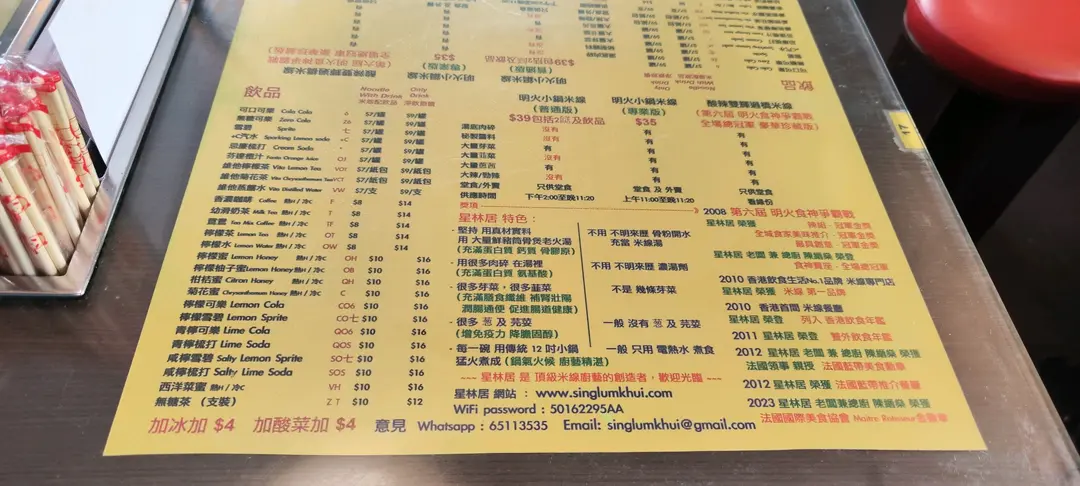 飲品
Noodle With Drink
米線配飲品
Only Drink
淨飲現價
可口可樂 Coca Cola 6 $7/罐 $9/罐
無糖可樂 Zero Cola Z6 $7/罐 $9/罐
雪碧 Sprite 七 $7/罐 $9/罐
+C汽水 Sparking Lemon soda $7/罐 $9/罐
忌廉梳打 Cream Soda $7/罐 $9/罐
芬達橙汁 Fanta Orange Juice OJ $7/罐 $9/罐
維他檸檬茶 Vita Lemon Tea VOT $7/紙包 $9/紙包
維他菊花茶 Vita Chrysanthemum Tea VCT $7/紙包 $9/紙包
維他蒸餾水 Vita Distilled Water VW $7/支 $9/支
香濃咖啡 Coffee 熱H / 冷C F $8 $14
幼滑奶茶 Milk Tea 熱H / 冷C T $8 $14
鴛鴦 Tea Mix Coffee 熱H / 冷C TF $8 $14
檸檬茶 Lemon Tea 熱H / 冷C OT $8 $14
檸檬水 Lemon Water 熱H / 冷C OW $8 $14
檸檬蜜 Lemon Honey 熱H / 冷C OH $10 $16
檸檬柚子蜜 Lemon Honey 熱H / 冷C OB $10 $16
柑桔蜜 Citron Honey 熱H / 冷C QH $10 $16
菊花蜜 Chrysanthemum Honey 熱H / 冷C C $10 $16
檸檬可樂 Lemon Cola CO6 $10 $16
檸檬雪碧 Lemon Sprite CO七 $10 $16
青檸可樂 Lime Cola QO6 $10 $16
青檸梳打 Lime Soda QOS $10 $16
咸檸雪碧 Salty Lemon Sprite SO七 $10 $16
咸檸梳打 Salty Lime Soda SOS $10 $16
西洋菜蜜 熱H / 冷C VH $10 $16
無糖茶 (支裝) ZT $10 $12
加冰加 $4 加酸菜加 $4 意見 Whatsapp : 65113535 Email: singlumkhui@gmail.com
明火小鍋米線
(普通版)
$39包括2餸及飲品
明火小鍋米線
(專業版)
$35
酸辣雙輝過橋米線
(第六屆 明火食神爭霸戰
全場總冠軍 豪華珍藏版)
湯底肉碎 沒有 有 有
秘製醬料 有 有 有
大量芽菜 沒有 有 有
大量韮菜 有 有
大量芫茜 有 有
大辣/勁辣 沒有 有 有
堂食/外賣 只供堂食 堂食 及 外賣 只供堂食
供應時間 下午2:00至晚11:20 上午11:00至晚11:20 看緣份
獎項
星林居 特色 :
- 堅持 用真材實料
用 大量鮮豬筒骨煲老火湯
(充滿蛋白質 鈣質 骨膠原)
不用 不明來歷 骨粉開水
充當 米線湯
- 用很多肉碎 在湯裡
(充滿蛋白質 氨基酸)
不用 不明來歷 濃湯劑
- 很多芽菜，很多韮菜
(充滿膳食纖維 補腎壯陽
潤腸通便 促進腸道健康)
不是 幾條芽菜
- 很多 葱 及 芫荽
(增免疫力 降膽固醇)
一般 沒有 葱 及 芫荽
- 每一碗 用傳統 12 吋小鍋
猛火煮成 (鍋氣火候 廚藝精湛)
一般 只用 電熱水 煮食
~~~ 星林居 是 頂級米線廚藝的創造者，歡迎光臨 ~~~
星林居 網站 : www.singlumkhui.com
WiFi password : 50162295AA
2008 第六屆 明火食神爭霸戰
星林居 榮獲 辣組 · 冠軍金獎
全城食家美味推介 · 冠軍金獎
最具創意 · 冠軍金獎
星林居 老闆 兼 總廚 陳鐵燊 榮登
食神寶座 · 全場總冠軍
2010 香港飲食生活No.1品牌 米線專門店
星林居 榮獲 米線 第一品牌
2010 香港首間 米線餐廳
星林居 榮登 列入 香港飲食年鑑
2011 星林居 榮登 饗外飲食年鑑
2012 星林居 老闆 兼 總廚 陳鐵燊 榮獲
法國領事 親授 法國藍帶美食勳章
2012 星林居 榮獲 法國藍帶推介餐廳
2023 星林居 老闆兼總廚 陳鐵燊 榮獲
法國國際美食協會 Maitre Rotisseur 金徽章